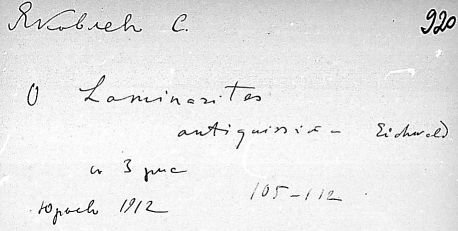 Яковлев С. 920
О Laminarites
antiquissi- Eichwald
с 3 рис
Юрьев 1912 105-112